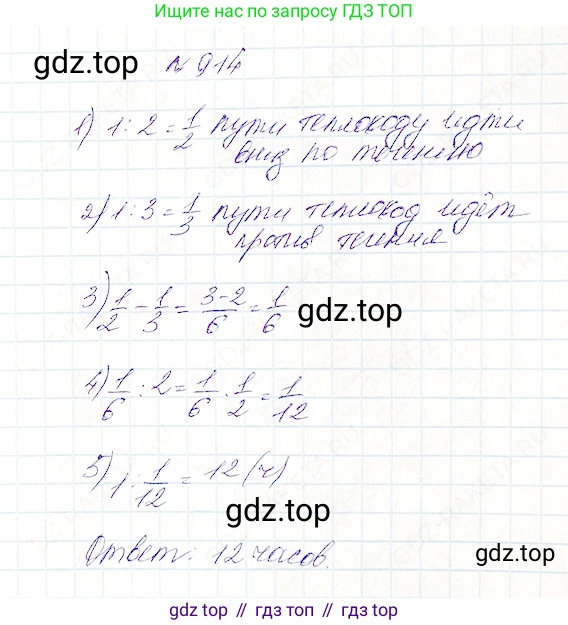 Ищите нас по запросу ГДЗ ТОП
gdz.top № 914
1) 1 : 2 = 1/2 пути теплоходу идти
вниз по течению
2) 1 : 3 = 1/3 пути теплоход идёт
против течения
3) 1/2 - 1/3 = (3-2)/6 = 1/6 gdz.top
4) 1/6 : 2 = 1/6 · 1/2 = 1/12
5) 1 : 1/12 = 12 (ч)
gdz.top
Ответ: 12 часов. gdz.top
gdz.top // гдз топ // гдз.top